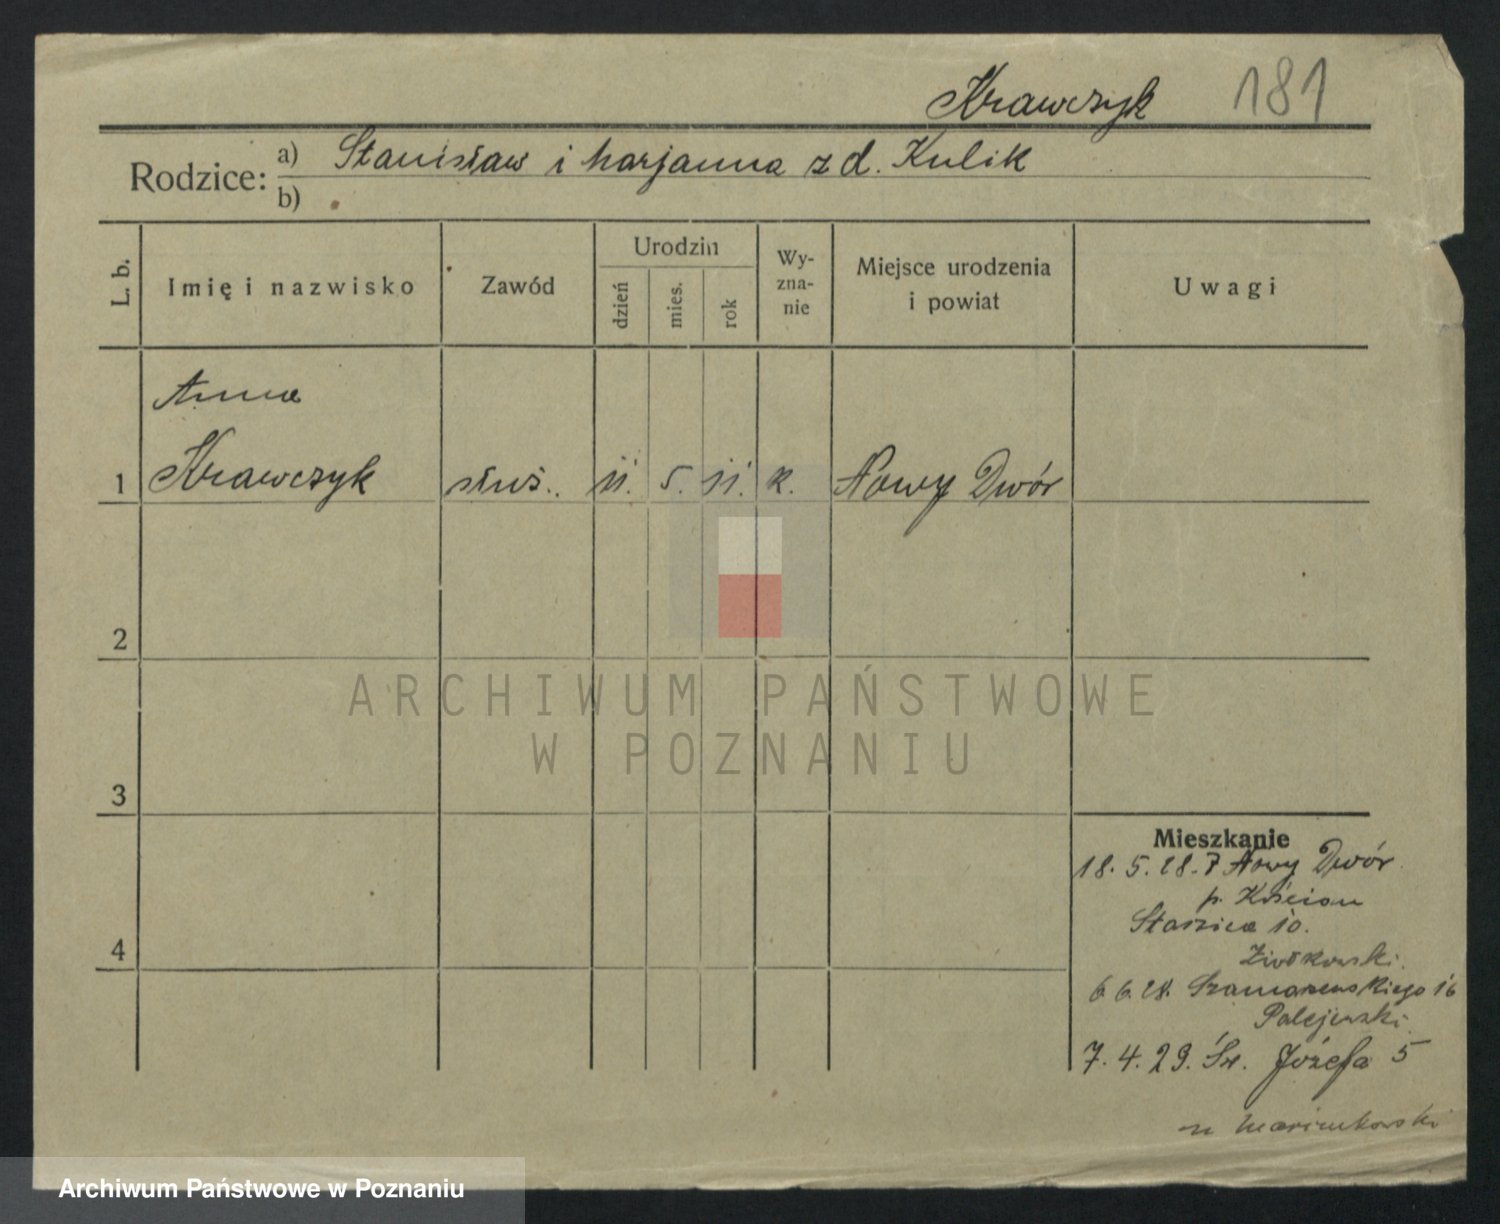 Krawczyk 181
Rodzice: a) Stanisław i Marjanna z d. Kulik
b)
L. b.
Imię i nazwisko
Zawód
Urodzin
dzień
mies.
rok
Wy-
zna-
nie
Miejsce urodzenia
i powiat
Uwagi
Anna
1 Krawczyk służ. 11. 5. 11. k. Nowy Dwór
2
ARCHIWUM PAŃSTWOWE
W POZNANIU
3
Mieszkanie
18. 5. 28. Nowy Dwór
p. Kościan
Staszica 10.
4
Ziółkowski.
6. 6. 28. Szamarzewskiego 16
7. 4. 29. Św. Józefa 5
Archiwum Państwowe w Poznaniu